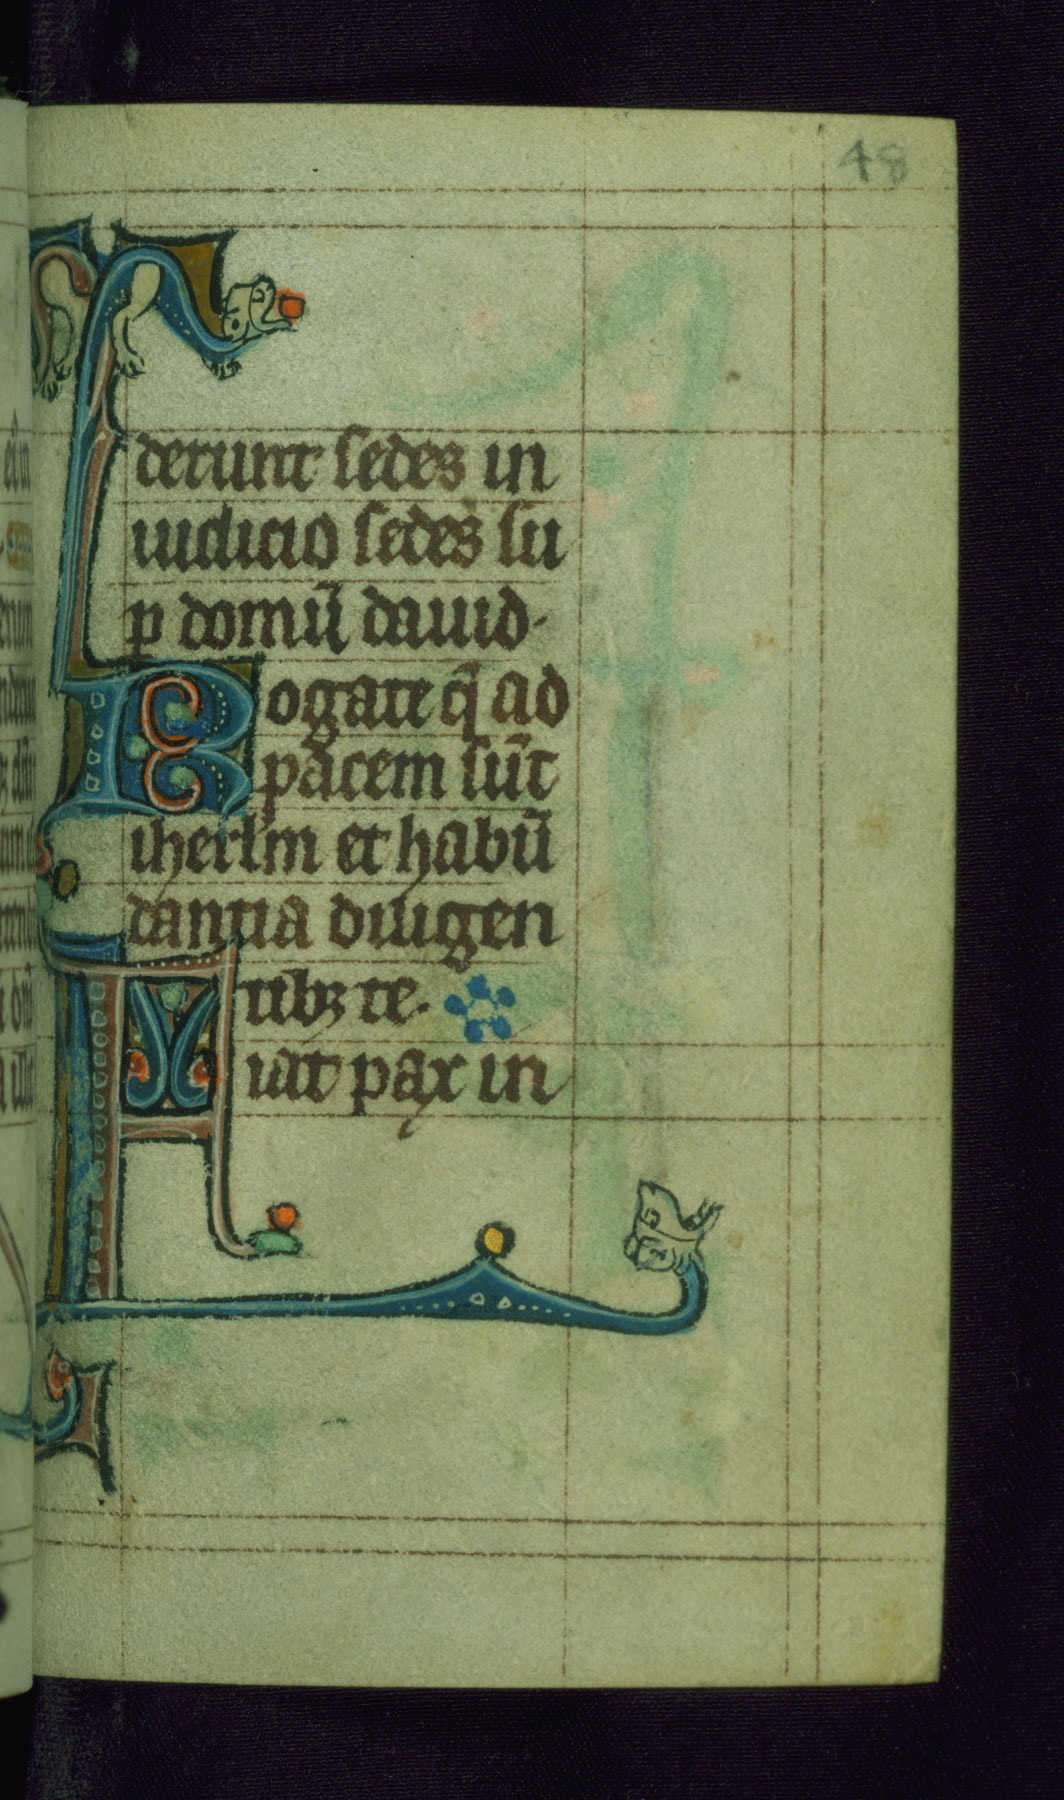 48
derunt sedes in
iudicio sedes su
ꝑ domū dauid·
Rogate q̄ ad
pacem sūt
iherl̄m et habū
dantia diligen
tibꝫ te·
Fiat pax in